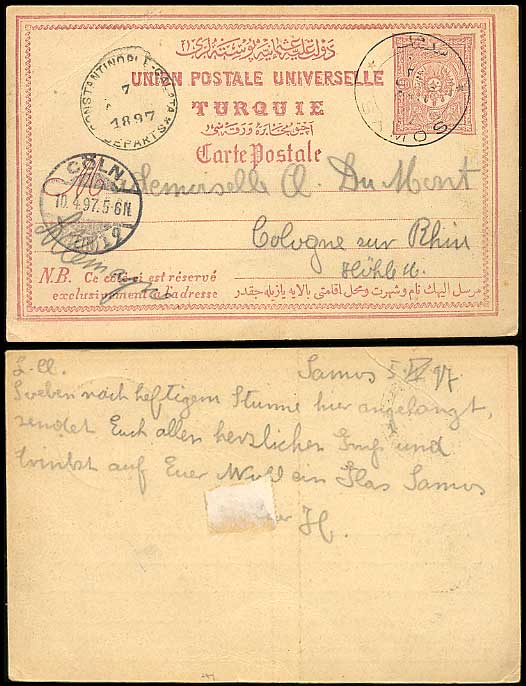 UNION POSTALE UNIVERSELLE
TURQUIE
Carte Postale
CONSTANTINOPLE-GALATA
7
1897
DEPARTS
SAMOS
CÖLN
10.4.97.5-6N.
Demoiselle A. Du Mont
Cologne sur Rhin
Allemagne
N.B. Ce côté-ci est réservé
exclusivement à l'adresse
مرسل اليهك نام و شهرت و محل اقامتی بالایه یازیله جقدر
Samos 5 IV 97
Soeben nach heftigem Sturme hier angelangt,
sendet Euch allen herzlichen Gruß und
trinkt auf Euer Wohl ein Glas Samos
Euer H.